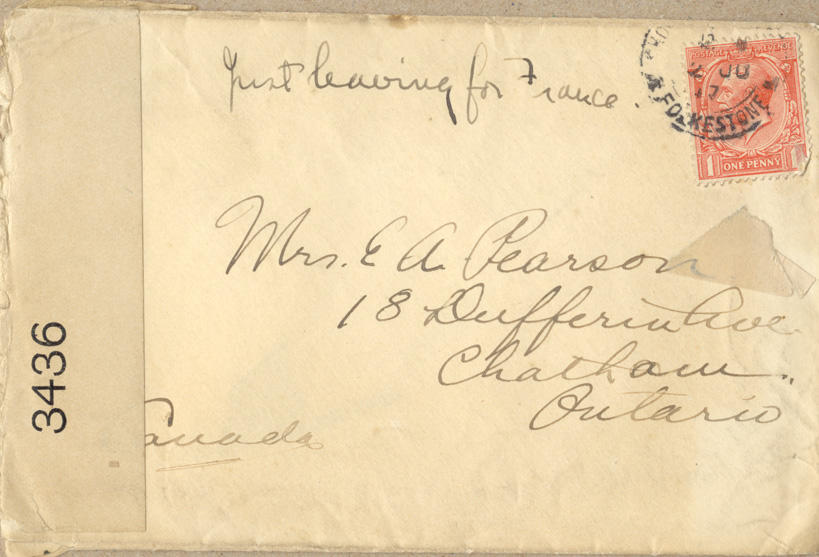 Just leaving for France.
FOLKESTONE
JU
17
POSTAGE REVENUE
1 ONE PENNY 1
Mrs. E A. Pearson
18 Dufferin Ave.
Chatham,
Ontario
Canada
3436